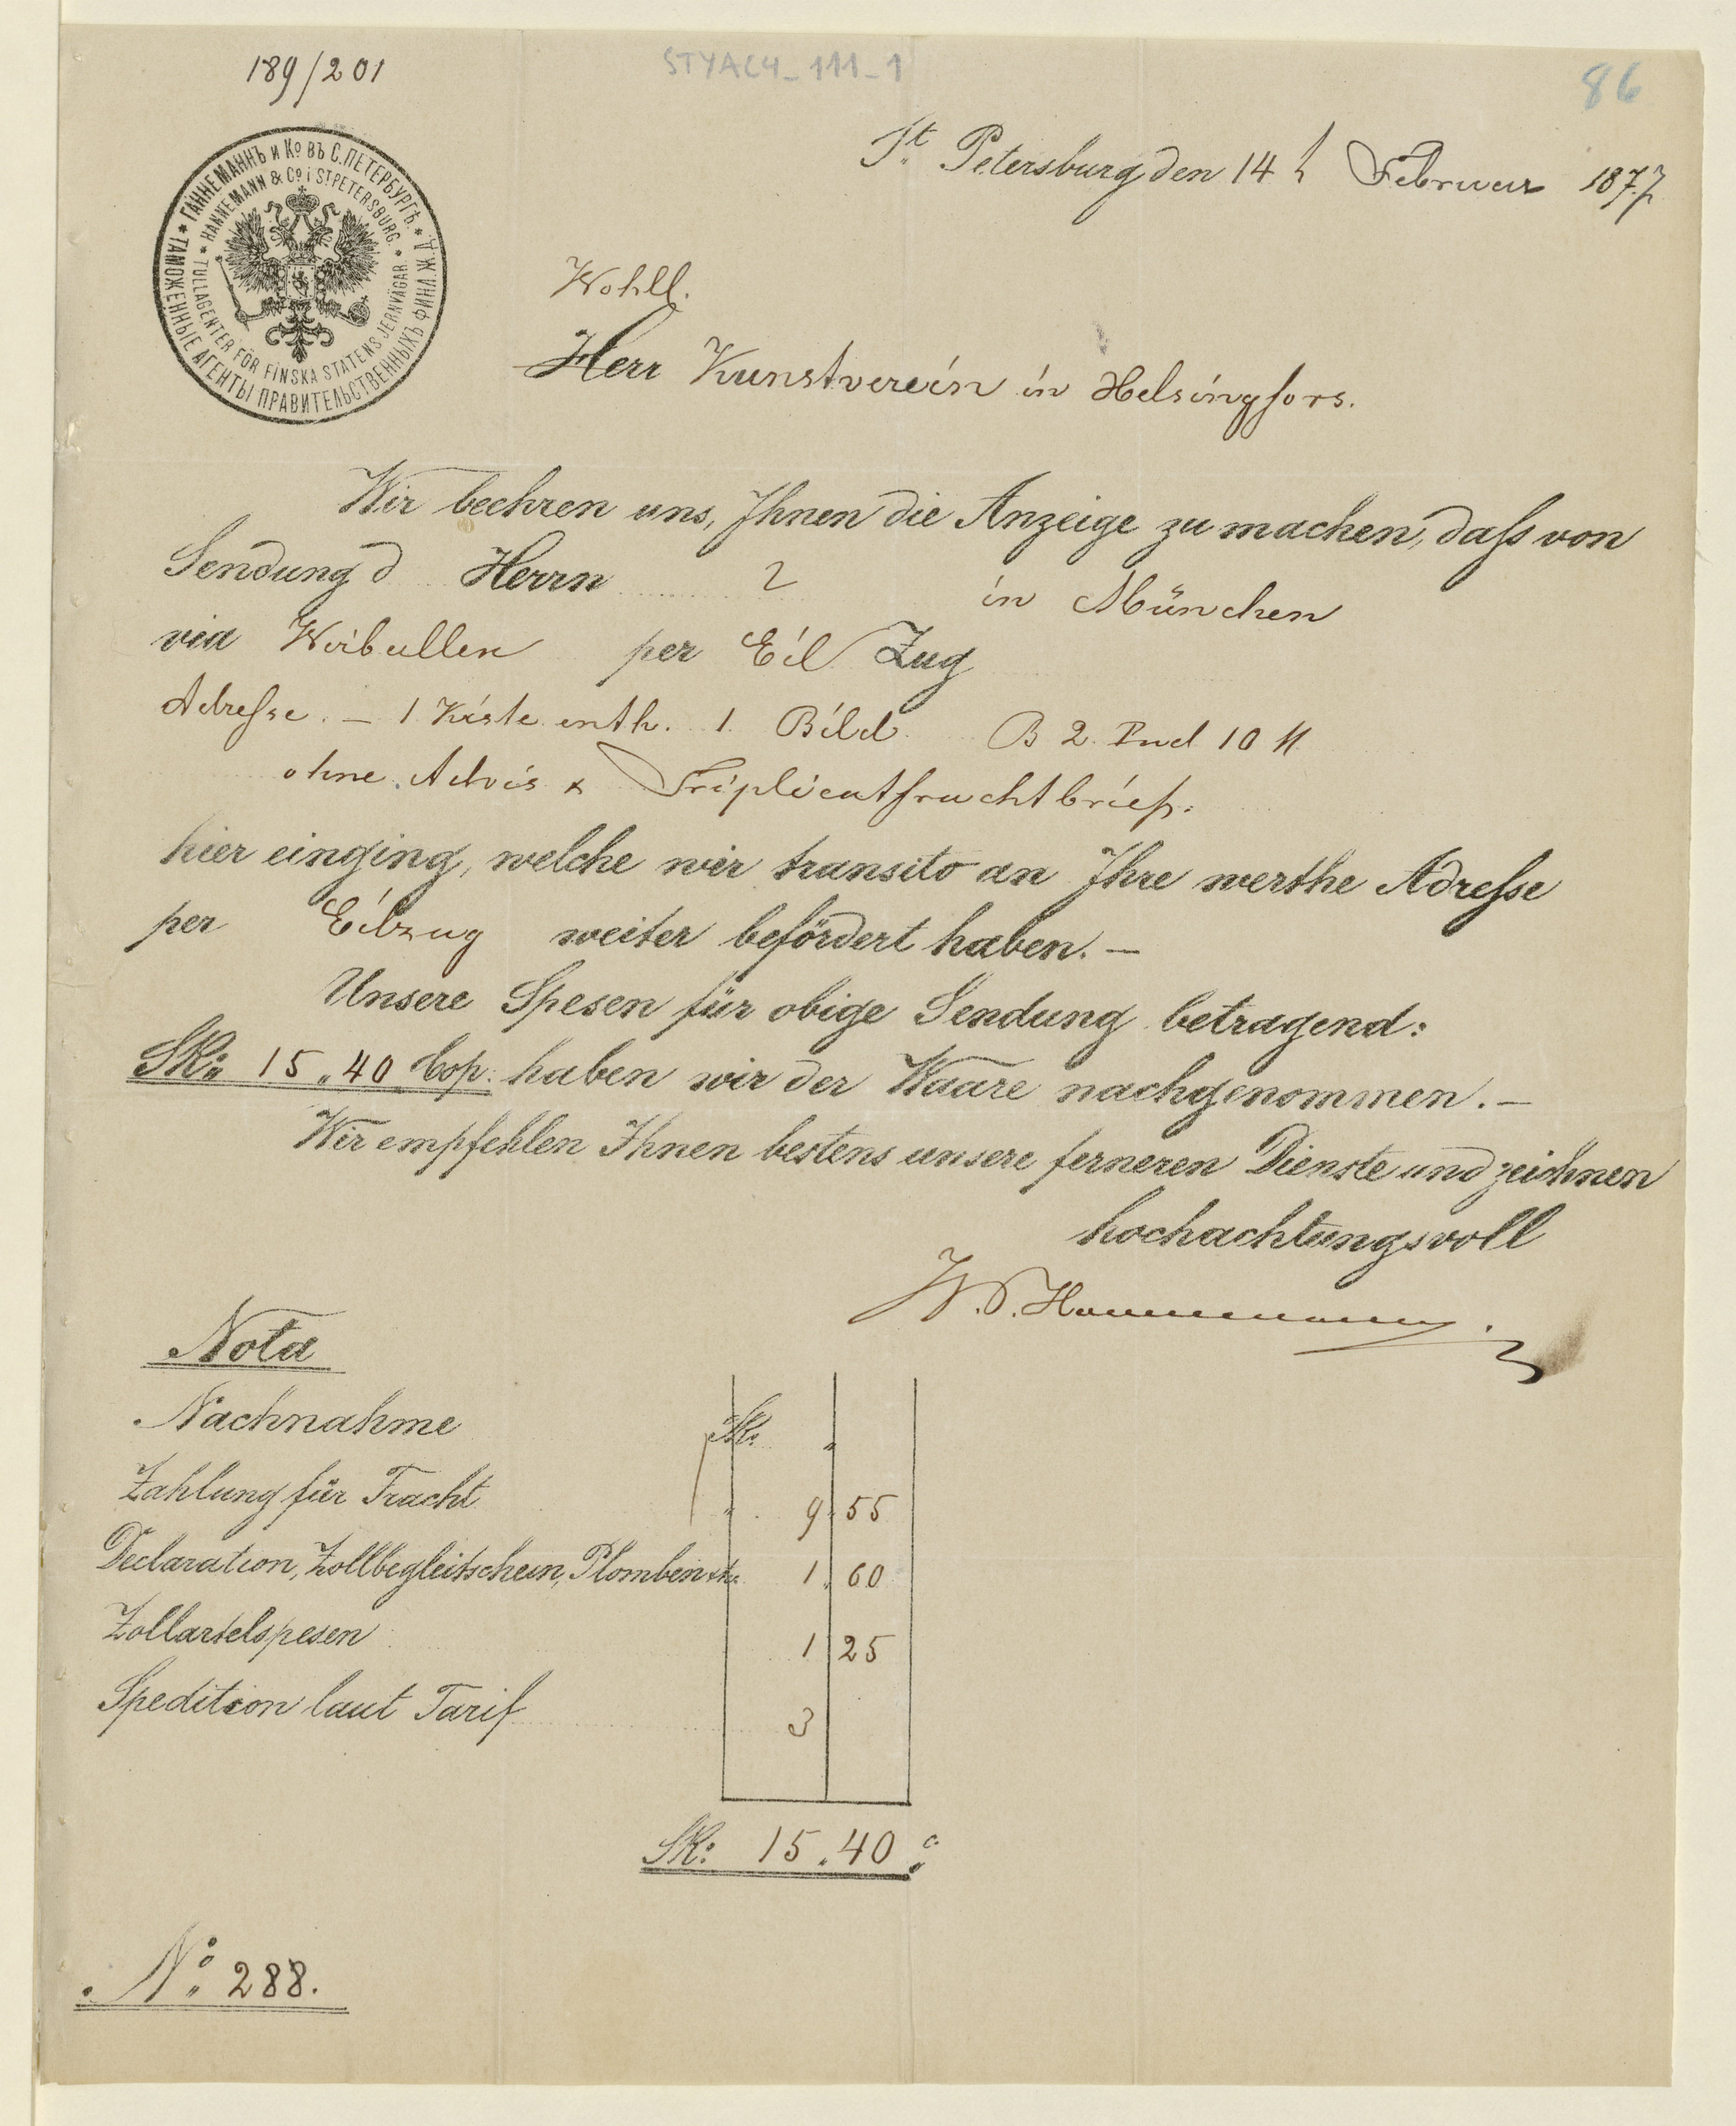 189/201
STYAL4_111_1
86
ГАННЕМАННЪ и Ко ВЪ С.ПЕТЕРБУРГѢ.
ТАМОЖЕННЫЕ АГЕНТЫ ПРАВИТЕЛЬСТВЕННЫХЪ ФИНЛ.Ж.Д.
HANNEMANN & Co i St PETERSBURG.
TULLAGENTER FÖR FINSKA STATENS JERNVÄGAR.
St Petersburg, den 14 Februar 1877
Wohll.
Herr Kunstverein in Helsingfors.
Wir beehren uns, Ihnen die Anzeige zu machen, daſs von
Sendung d Herrn in München
via Wirballen per Eil Zug
Adreſse. – 1 Kiste enth. 1 Bild B 2 Pud 10 ℔
ohne Advis & Triplicatfrachtbrief.
hier einging, welche wir transito an Ihre werthe Adreſse
per Eilzug weiter befördert haben. –
Unsere Spesen für obige Sendung betragend:
SR: 15 „ 40 Cop. haben wir der Waare nachgenommen. –
Wir empfehlen Ihnen bestens unsere ferneren Dienste und zeichnen
hochachtungsvoll
W. D. Hannemann.
Nota
Nachnahme SR: „
Zahlung für Fracht „ 9 55
Declaration, Zollbegleitschein, Plomben etc 1 60
Zollartelspesen 1 25
Spedition laut Tarif 3
SR: 15 „ 40 c.
No 288.